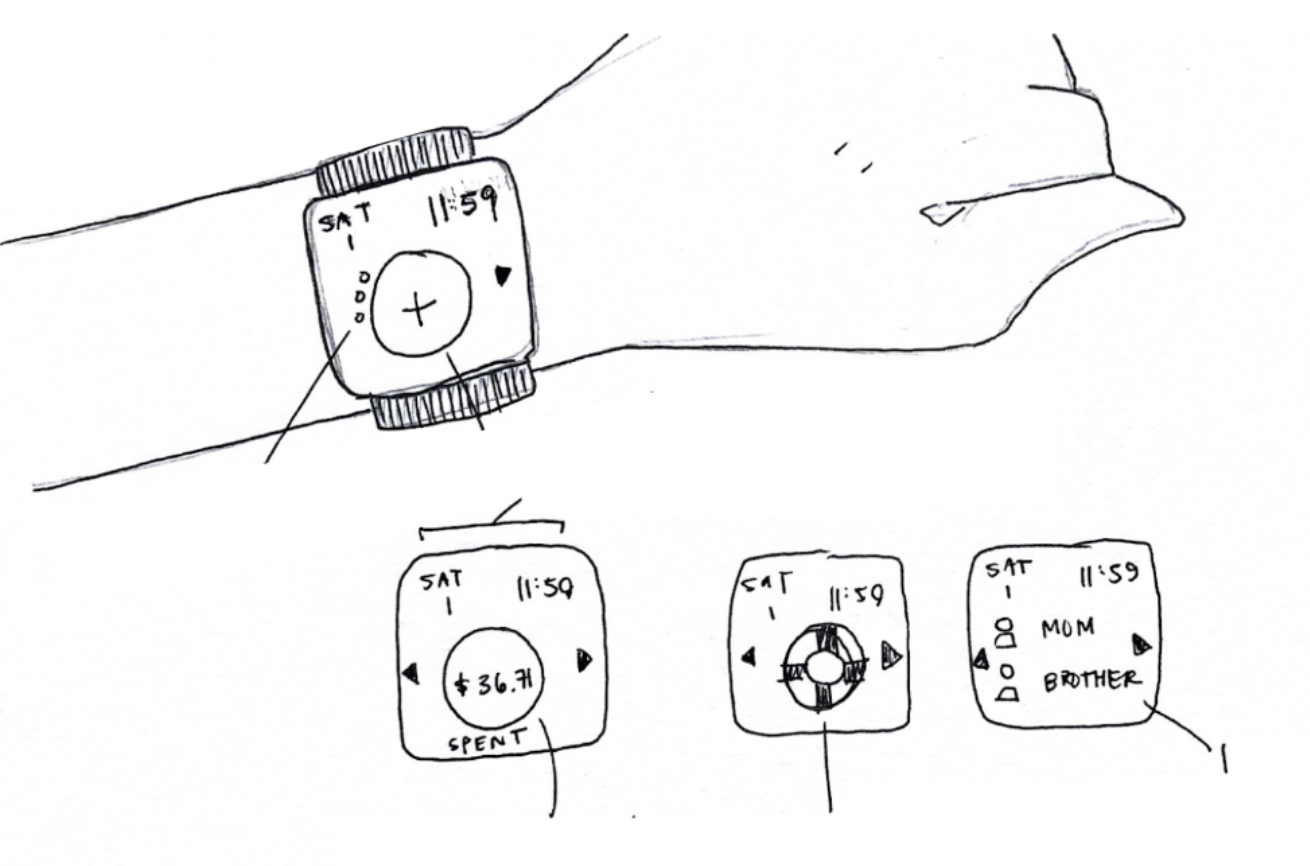 SAT 11:59
1
+
SAT 11:59
1
$36.71
SPENT
SAT 11:59
1
SAT 11:59
1
MOM
BROTHER